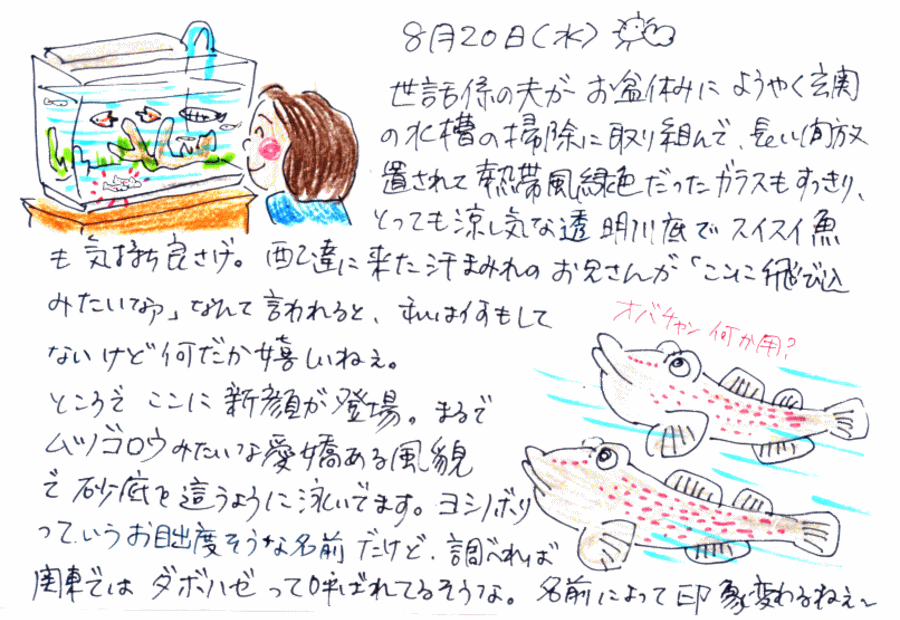 8月20日(水)
世話係の夫が お盆休みに ようやく玄関
の水槽の掃除に取り組んで、長い間放
置されて熱帯風緑色だったガラスもすっきり、
とっても涼し気な透明川底でスイスイ魚
も気持ち良さげ。配達に来た汗まみれのお兄さんが「ここに飛び込
みたいなァ」なんて言われると、私は何もして
ないけど何だか嬉しいねぇ。
オバチャン 何か用?
ところで ここに新顔が登場。まるで
ムツゴロウみたいな愛嬌ある風貌
で 砂底を這うように泳いでます。ヨシノボリ
っていうお目出度そうな名前だけど、調べれば
関東では ダボハゼって呼ばれてるそうな。名前によって印象変わるねぇ〜